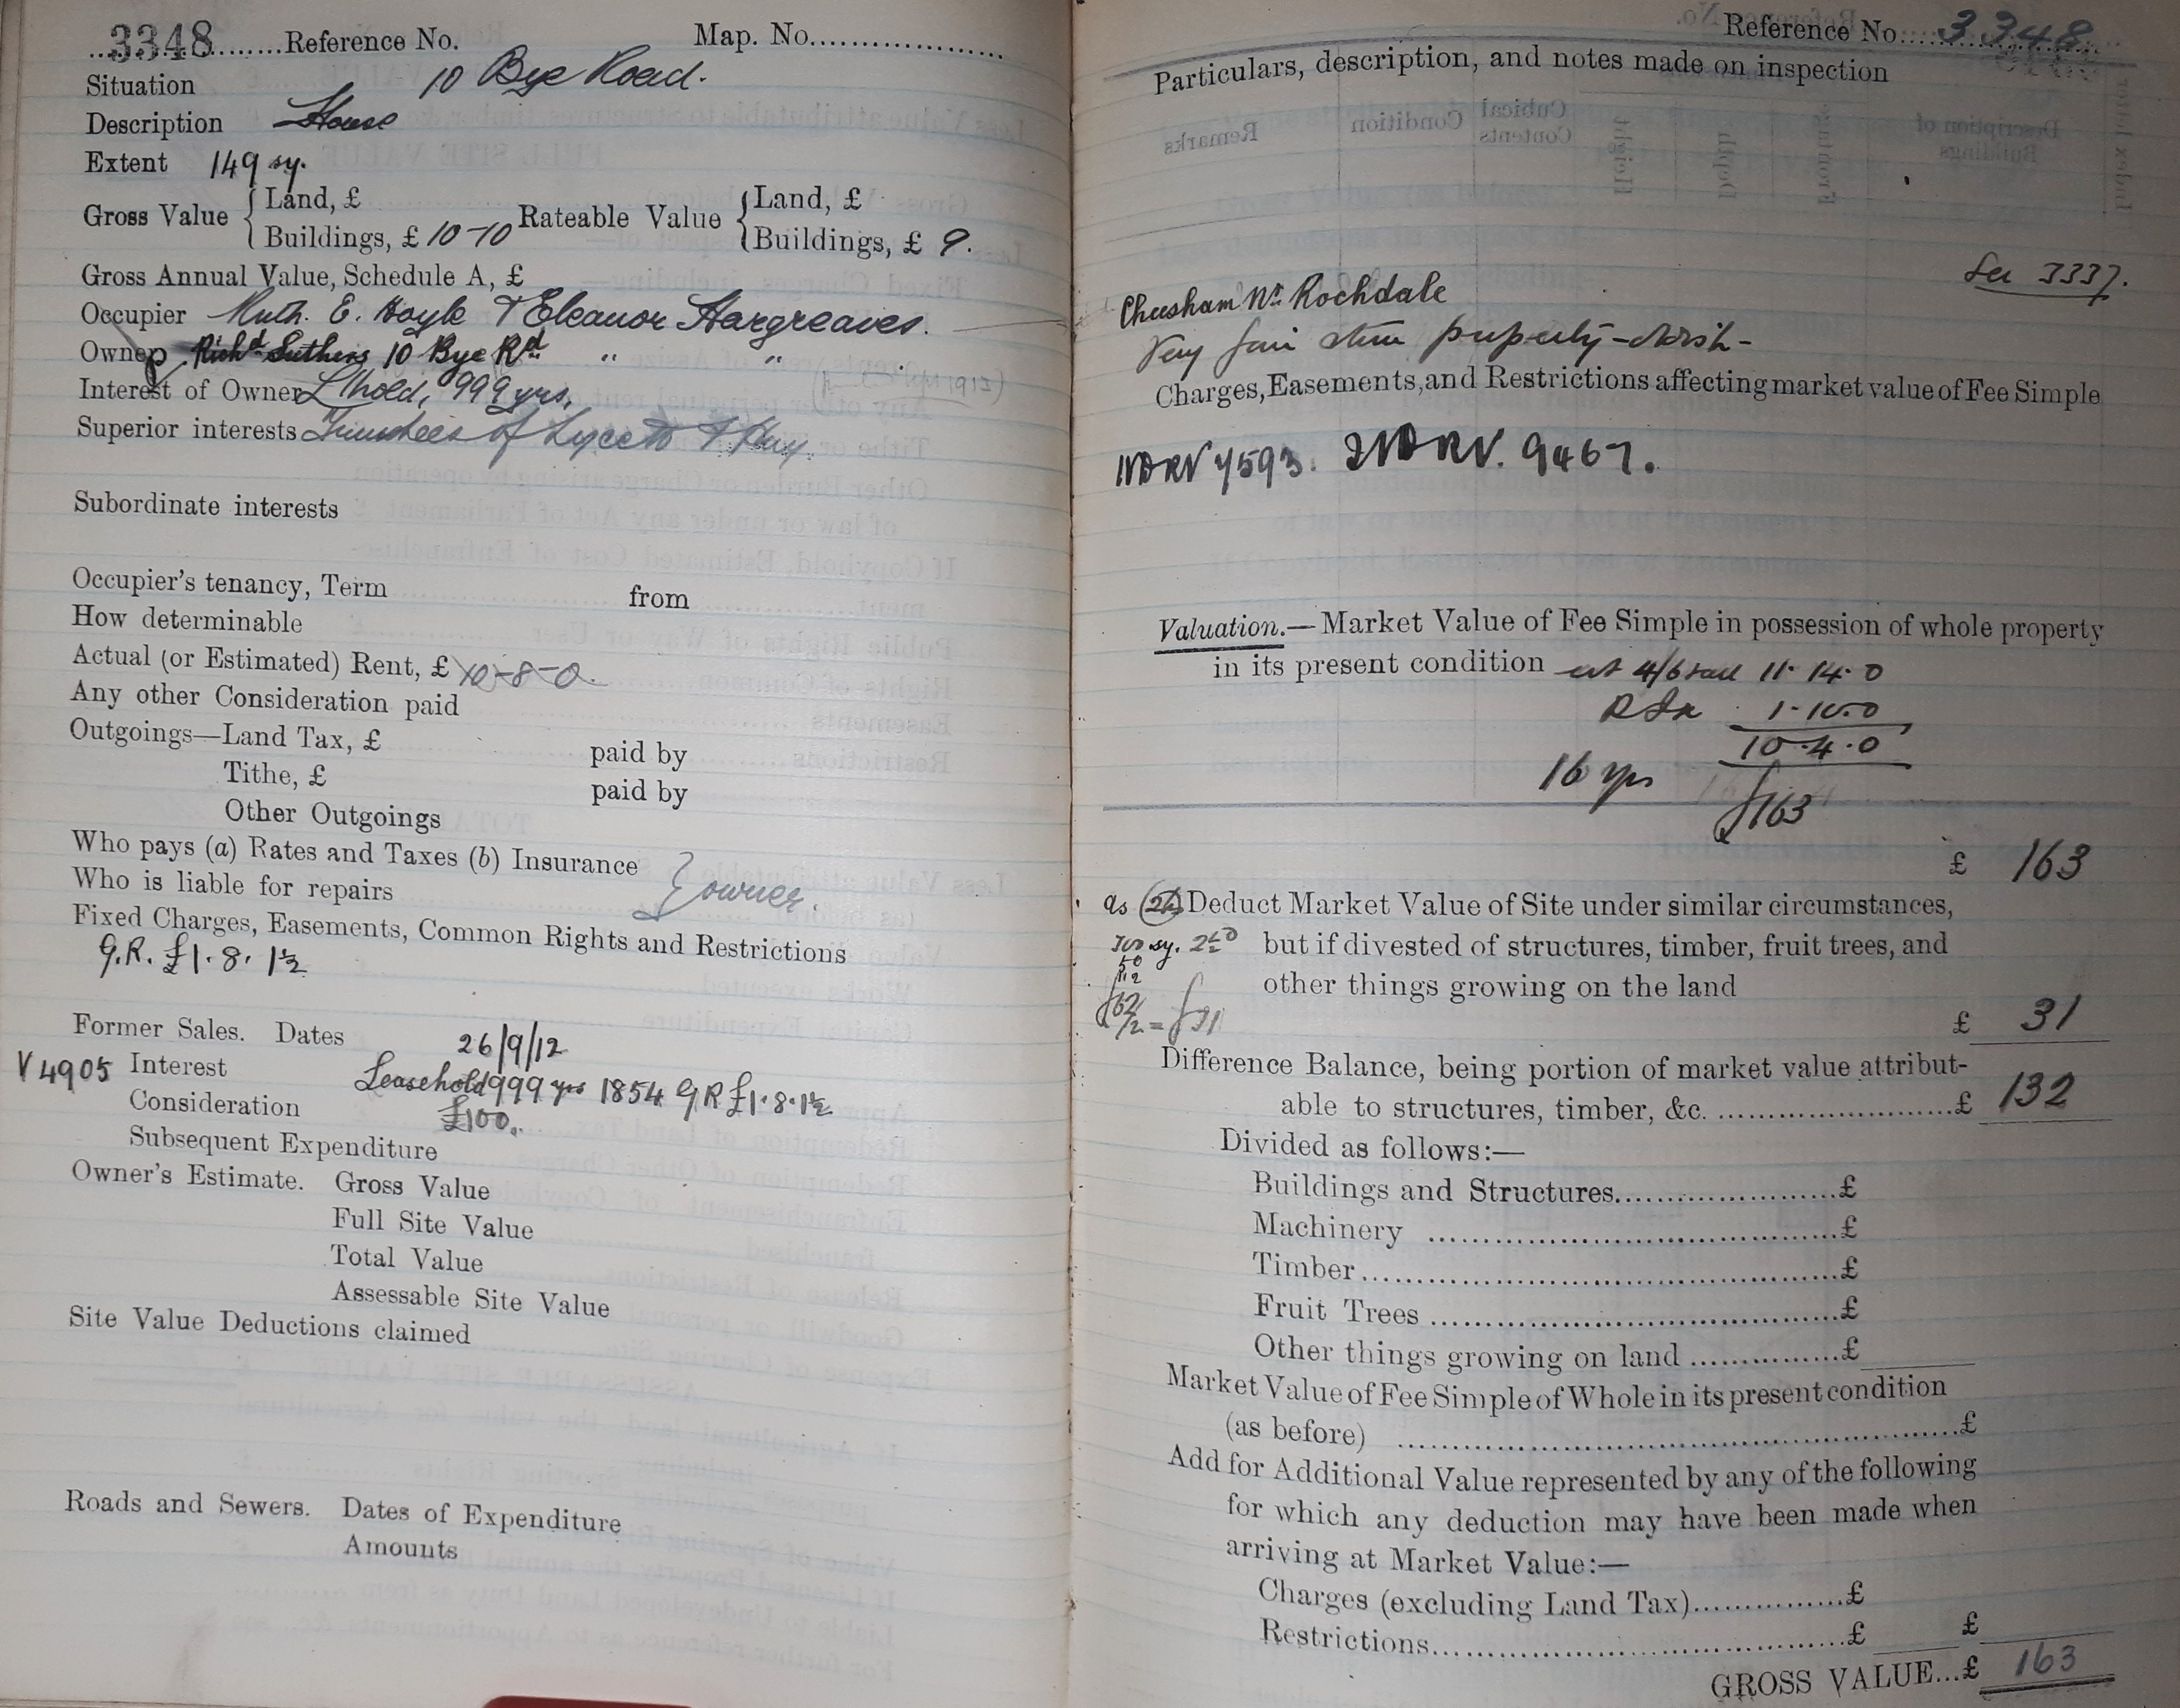 3348 Reference No. Map. No.
Situation 10 Bye Road.
Description House
Extent 149 sy.
Gross Value { Land, £ Rateable Value { Land, £
Buildings, £ 10-10 Buildings, £ 9.
Gross Annual Value, Schedule A, £
Occupier Ruth. E. Hoyle & Eleanor Hargreaves.
Owner Richd Suthers 10 Bye Rd " "
Interest of Owner Lhold, 999 yrs.
Superior interests Trustees of &
Subordinate interests
Occupier's tenancy, Term from
How determinable
Actual (or Estimated) Rent, £ 10-8-0.
Any other Consideration paid
Outgoings—Land Tax, £ paid by
Tithe, £ paid by
Other Outgoings
Who pays (a) Rates and Taxes (b) Insurance
Who is liable for repairs } owner.
Fixed Charges, Easements, Common Rights and Restrictions
G.R. £1. 8. 1½
Former Sales. Dates 26/9/12
V 4905 Interest Leasehold 999 yrs 1854 GR £1.8.1½
Consideration £100.
Subsequent Expenditure
Owner's Estimate. Gross Value
Full Site Value
Total Value
Assessable Site Value
Site Value Deductions claimed
Roads and Sewers. Dates of Expenditure
Amounts
Reference No. 3348
Particulars, description, and notes made on inspection
See 3337.
Cheesham Nr. Rochdale
Very fair stone property
Charges, Easements, and Restrictions affecting market value of Fee Simple
1NDRV 7593. 2NDRV. 9467.
Valuation.—Market Value of Fee Simple in possession of whole property
in its present condition at 4/6 11. 14. 0
1-10.0
10.4.0
16 yrs
£163
£ 163
as Deduct Market Value of Site under similar circumstances,
sy. but if divested of structures, timber, fruit trees, and
other things growing on the land
£62/2 = £31
£ 31
Difference Balance, being portion of market value attribut-
able to structures, timber, &c. £ 132
Divided as follows:—
Buildings and Structures £
Machinery £
Timber £
Fruit Trees £
Other things growing on land £
Market Value of Fee Simple of Whole in its present condition
(as before) £
Add for Additional Value represented by any of the following
for which any deduction may have been made when
arriving at Market Value:—
Charges (excluding Land Tax) £
Restrictions £ £
GROSS VALUE...£ 163